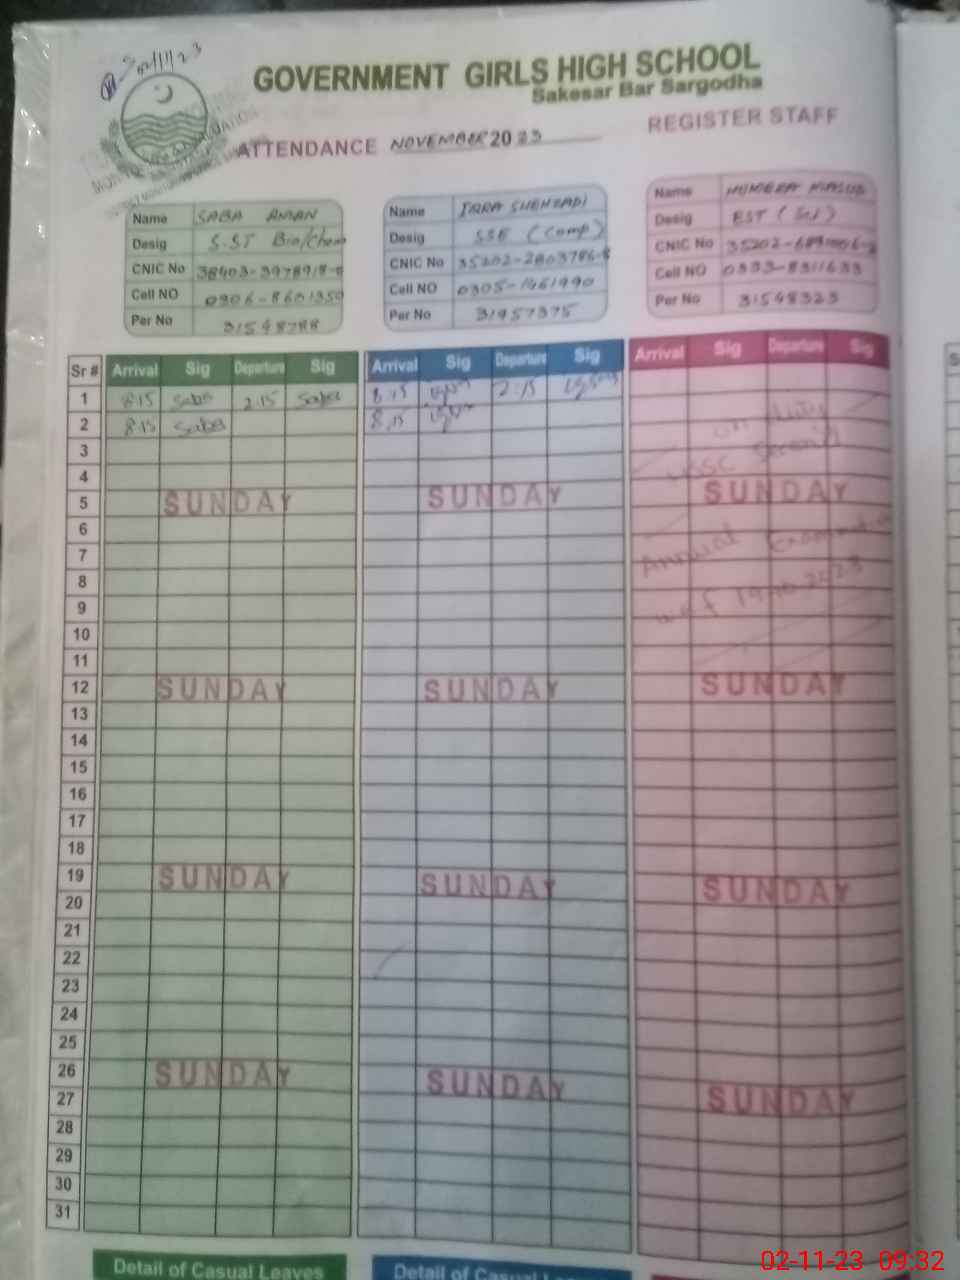 02/11/23
GOVERNMENT GIRLS HIGH SCHOOL
Sakesar Bar Sargodha
ATTENDANCE NOVEMBER 2023
REGISTER STAFF
Name SABA
Desig S.ST Bio/Chem
CNIC No
Cell NO
Per No 31548788
Name IQRA SHEHZADI
Desig SSE (Comp)
CNIC No 35202-2803786-8
Cell NO 0305-1461990
Per No 31957375
Name HUMERA MASUD
Desig EST
CNIC No
Cell NO 0333-8311633
Per No 31548323
Sr # Arrival Sig Departure Sig Arrival Sig Departure Sig Arrival Sig Departure Sig
1 8:15 Saba 2:15 Saba 8:15 2:15
2 8:15 Saba 8:15 on duty
3
4
5 SUNDAY SUNDAY SUNDAY
6
7 Annual
8
9 w.e.f
10
11
12 SUNDAY SUNDAY SUNDAY
13
14
15
16
17
18
19 SUNDAY SUNDAY SUNDAY
20
21
22
23
24
25
26 SUNDAY SUNDAY SUNDAY
27
28
29
30
31
Detail of Casual Leaves Detail of Casual
02-11-23 09:32